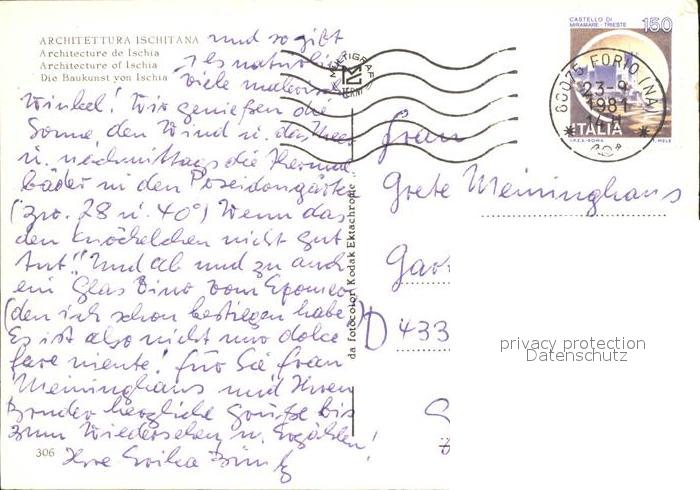 ARCHITETTURA ISCHITANA
Architecture de Ischia
Architecture of Ischia
Die Baukunst von Ischia
und so gibt
es natürlich
viele malerische
Winkel! Wir genießen die
Sonne, den Wind u. das Meer
u. nachmittags die Thermal
bäder in den Poseidongärten
(zw. 28 u. 40°) Wenn das
den Knöchelchen nicht gut
tut!! Und ab und zu auch
ein Glas Vino vom Epomeo
(den ich schon bestiegen habe)
Es ist also nicht nur dolce
fare niente! Für Sie Frau
Meininghaus und Ihren
Bruder herzliche Grüße bis
zum Wiedersehen u. Erzählen!
Ihre Erika
306
da fotocolor Kodak Ektachrome
MULTIGRAF
TERNI
CASTELLO DI
MIRAMARE - TRIESTE
150
ITALIA
I.P.Z.S. ROMA
T. MELE
80075 FORIO (NA)
23-9
1981
Frau
Grete Meininghaus
D 433
privacy protection
Datenschutz